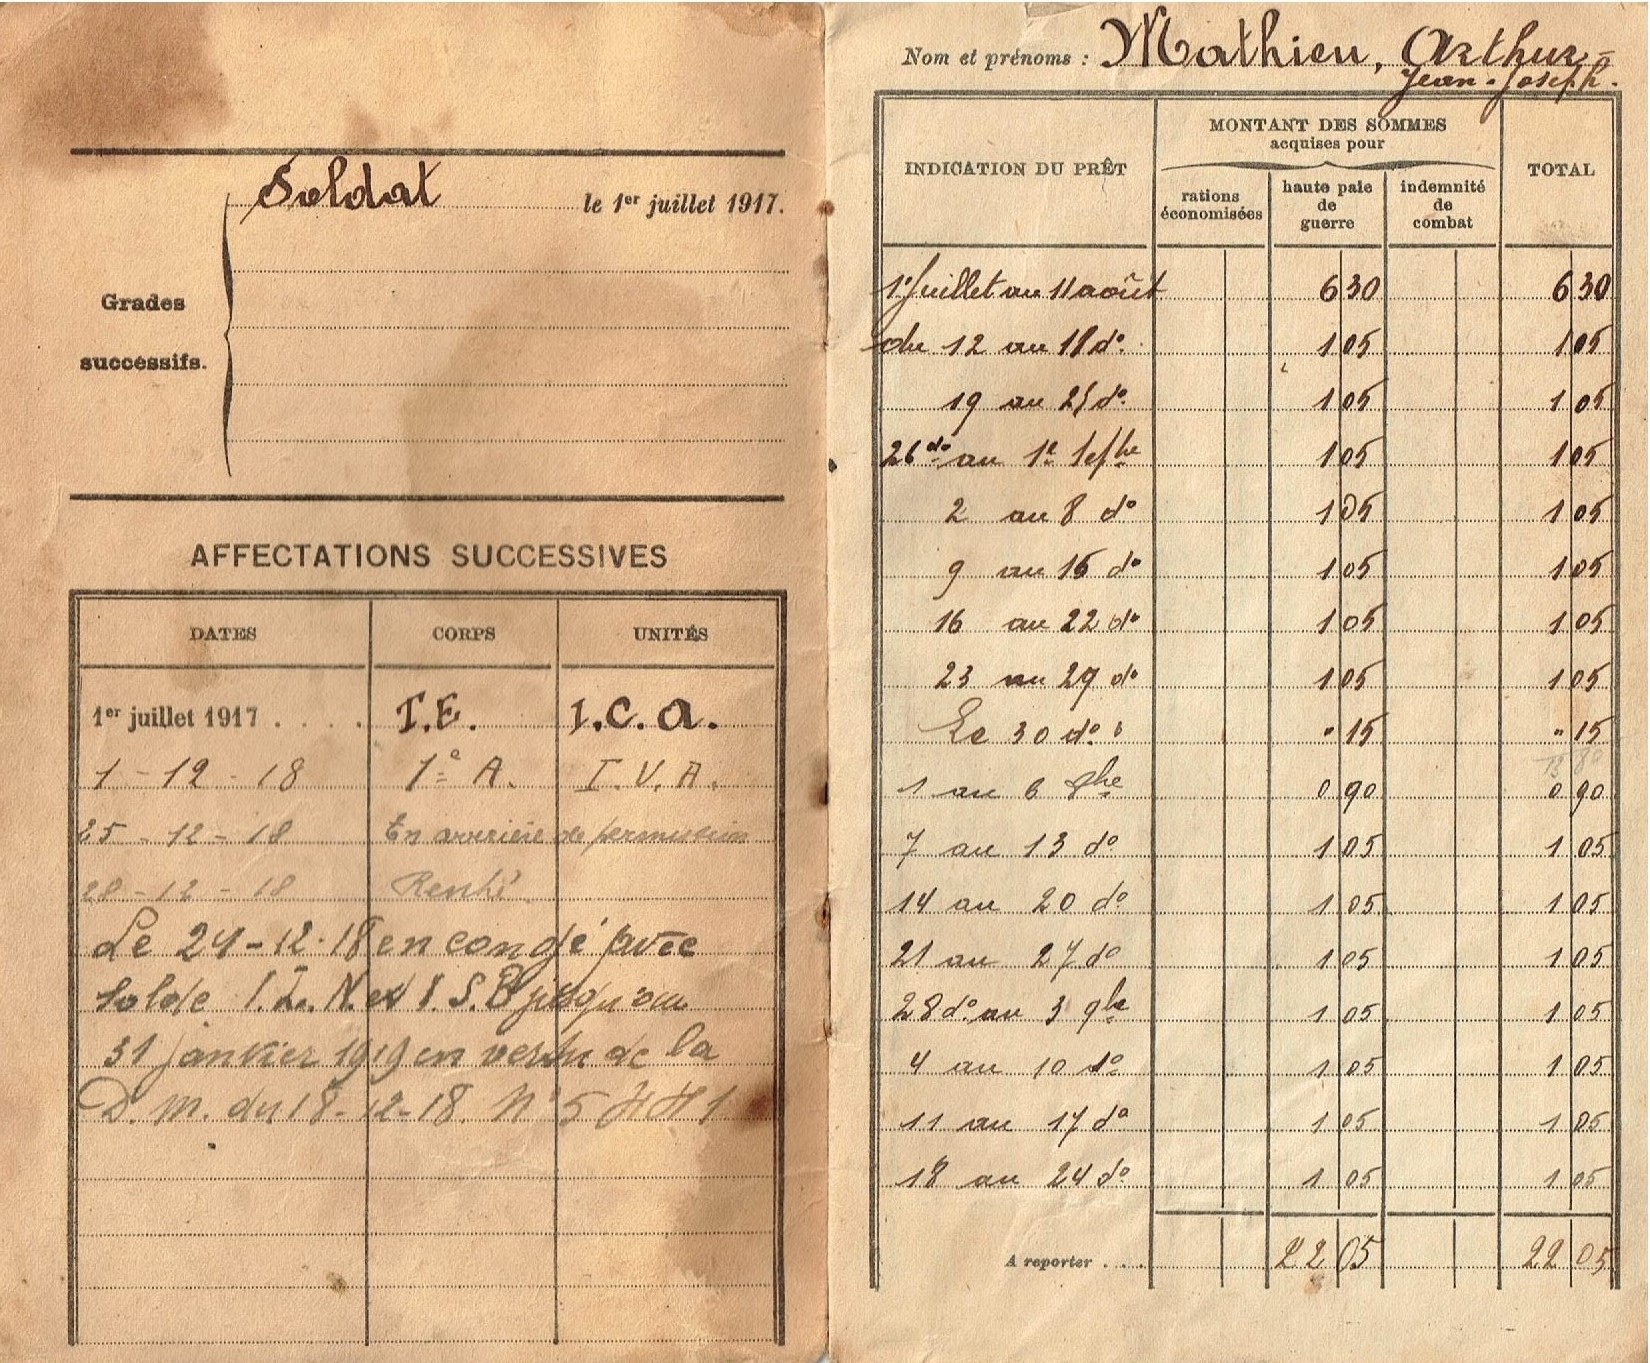 Soldat le 1er juillet 1917.
Grades
successifs.
AFFECTATIONS SUCCESSIVES
DATES CORPS UNITÉS
1er juillet 1917 . . . . T.E. I.C.a.
1 - 12 - 18 1e A. I.V.A.
25 - 12 - 18 En arrière de permission
28 - 12 - 18 Rentré
Le 24-12-18 en congé avec
solde I. N. et I.S. jusqu'au
31 janvier 1919 en vertu de la
D.M. du 18-12-18. N°5
Nom et prénoms : Mathieu, Arthur-
Jean-Joseph.
INDICATION DU PRÊT
MONTANT DES SOMMES
acquises pour
rations
économisées
haute paie
de
guerre
indemnité
de
combat
TOTAL
1r Juillet au 11 août 6 30 6 30
du 12 au 18 do 1 05 1 05
19 au 25 do 1 05 1 05
26 do au 1e 7bre 1 05 1 05
2 au 8 do 1 05 1 05
9 au 15 do 1 05 1 05
16 au 22 do 1 05 1 05
23 au 29 do 1 05 1 05
Le 30 do " 15 " 15
1 au 6 8bre 0 90 0 90
7 au 13 do 1 05 1 05
14 au 20 do 1 05 1 05
21 au 27 do 1 05 1 05
28 do au 3 9bre 1 05 1 05
4 au 10 do 1 05 1 05
11 au 17 do 1 05 1 05
18 au 24 do 1 05 1 05
A reporter . . . 22 05 22 05